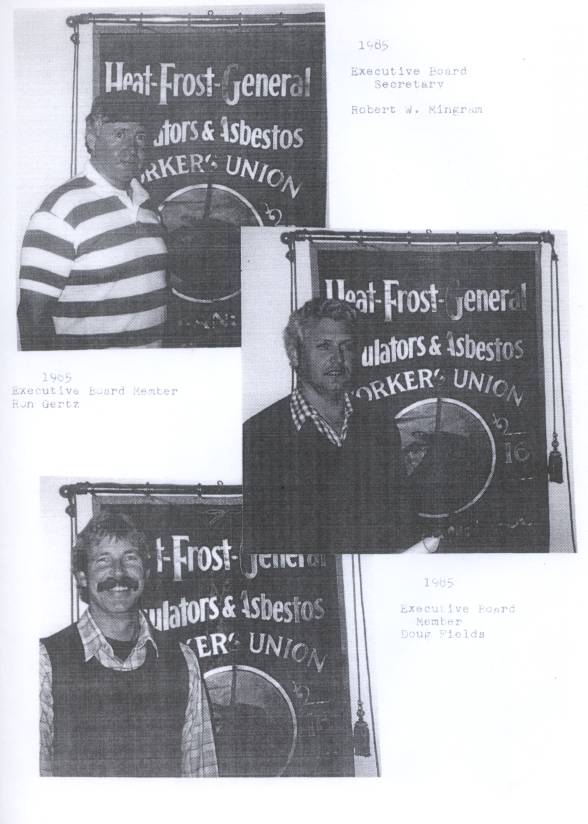 Heat-Frost-General
ators & Asbestos
ORKERS UNION
1985
Executive Board
Secretary
Robert W. Mingram
1985
Executive Board Member
Ron Gertz
Heat-Frost-General
ulators & Asbestos
ORKERS UNION
16
1985
Executive Board
Member
Doug Fields
t-Frost-General
ulators & Asbestos
KERS UNION
16